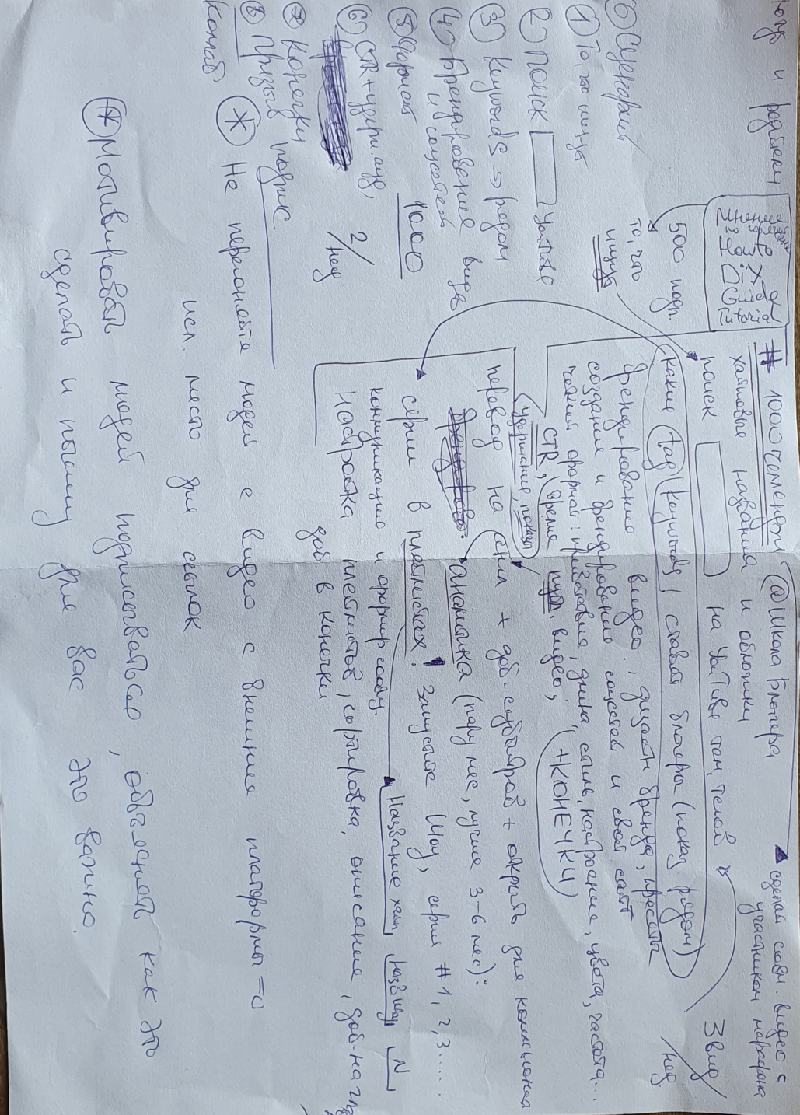 и
# 1000 челлендж
@Школа Блогера
сделай совм. видео с
участником марафона
хайповые названия и обложки
поиск на YouTube там, темой
3 вид/нед
How to
DIY
Guide
Tutorial
500 подп.
то, что
ищут
какие tag, keywords, ставят блогеры (показ рядом)
Брендирование видео, дизайн бренда, красоты
создание и брендирование соцсетей и свой сайт
четкий формат: приветствие, длина, стиль, настроение, цвета, частота...
CTR, время публ. видео; +КОНЕЧКИ
удержание, показы
перевод на англ + доб. субтитров + открыть для комьюнити
аналитика (пару мес, лучше 3-6 мес):
серии в плейлистах! Запустите Шоу, серии #1, 2, 3.....
Название хайп, Назв шоу, N
коммуникацию и формир сообщ.
Настройка плейлистов, сортировка, описание, доб. на глав
доб в конечки
0 Сценарий
1 То что ищут
2 Поиск YouTube
3 Keywords → рядом
4 Брендирование видео
и соцсетей
5 Формат
1000
6 CTR + удерж. ауд,
2/нед
7 Конечки
8 Призыв подпис
Коллаб
* Не перегоняйте людей с видео с внешние платформы =0
исп. место для ссылок
* Мотивировать людей подписываться, объяснять как это
сделать и почему для вас это важно.